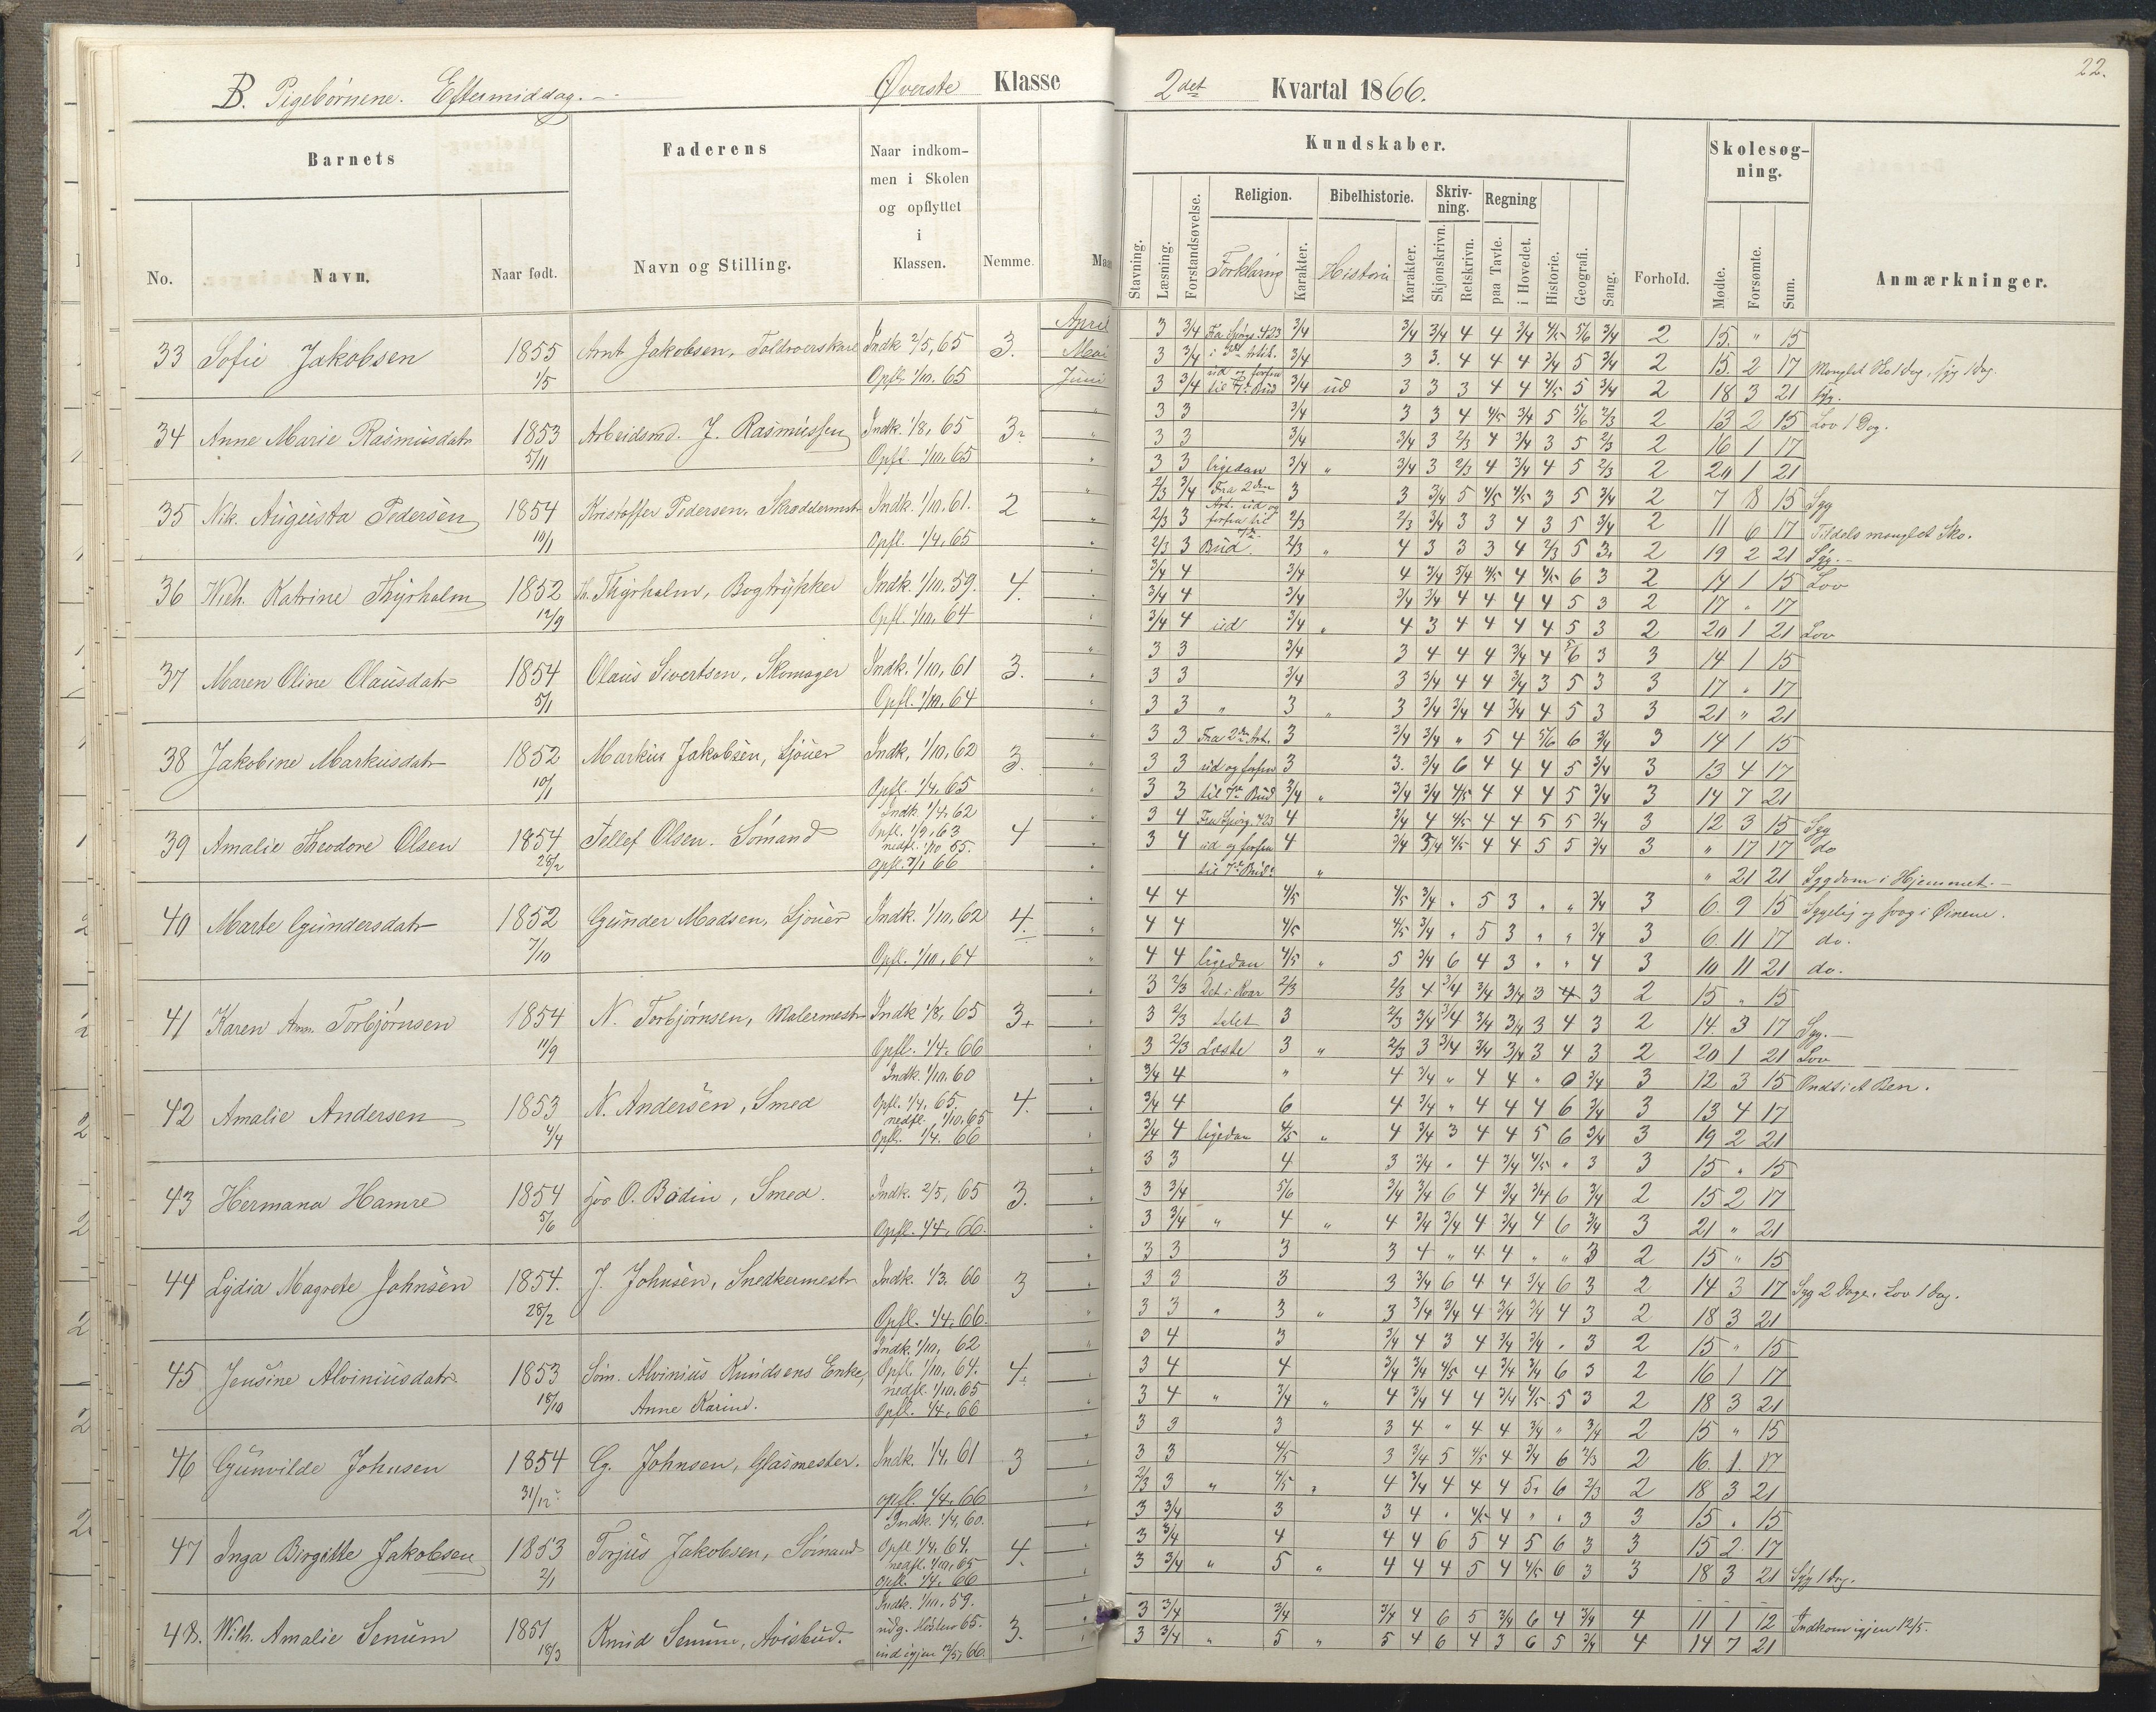 B. Pigebørnene. Eftermiddag. Øverste Klasse
2det Kvartal 1866.
22.
Barnets
Faderens
Naar indkommen i Skolen og opflyttet i Klassen.
Nemme.
No.
Navn.
Naar født.
Navn og Stilling.
Kundskaber.
Skolesøgning.
Stavning.
Læsning.
Forstandsøvelse.
Religion.
Forklaring
Karakter.
Bibelhistorie.
Historie
Karakter.
Skrivning.
Skjønskrivn.
Retskrivn.
Regning
paa Tavle.
i Hovedet.
Historie.
Geografi.
Sang.
Forhold.
Møde.
Forsømte.
Sum.
Anmærkninger.
33 Sofie Jakobsen 1855 1/5 Arnt Jakobsen, Toldroerskarl Indk 2/5, 65 Opfl. 1/10. 65 3. April Mai Juni
3 3/4 Fra Spørgs. 423 3/4 3/4 3/4 4 4 3/4 4/5 5/6 3/4 2 15. " 15
3 3/4 3/4 3 3. 4 4 4 3/4 5 3/4 2 15. 2 17 Manglet Sko 1 Dag, syg 1 Dag.
3 3/4 til 7de Bud 3/4 ud 3 3 3 4 4 4/5 5 3/4 2 18 3 21 Syg.
34 Anne Marie Rasmusdatr 1853 5/11 Arbeidsmd. J. Rasmussen Indk. 1/8, 65 Opfl. 1/10, 65 3
3 3 3/4 3 3 4 4/5 3/4 5 5/6 2/3 2 13 2 15 Lov 1 Dag.
3 3 3/4 3/4 3 2/3 4 3/4 3 5 2/3 2 16 1 17
3 3 ligedan 3/4 " 3/4 3 2/3 4 3/4 4 5 2/3 2 20 1 21
35 Nik. Augusta Pedersen 1854 10/1 Kristoffer Pedersen, Skreddermstr Indk. 1/10, 61. Opfl. 1/4, 65 2
2/3 3/4 Fra 2den 3 3 3/4 5 4/5 4/5 3 5 3/4 2 7 8 15 Syg
2/3 3 Art. ud og forfra til 2/3 2/3 3/4 3 3 4 3 5 3/4 2 11 6 17 Tildels manglet Sko.
2/3 3 Bud. 2/3 " 4 3 3 3 4 2/3 5 3. 2 19 2 21 Syg.
36 Wilh. Katrine Thyrholm 1852 12/9 Th. Thyrholm, Bogtrykker Indk. 1/10. 59. Opfl. 1/10, 64 4.
3/4 4 3/4 4 3/4 5/4 4/5 4 4/5 6 3 2 14 1 15 Lov
3/4 4 3/4 3/4 3/4 4 4 4 4 5 3 2 17 " 17
3/4 4 ud 3/4 " 4 3 4 4 4 4 5 3 2 20 1 21 Lov
37 Maren Oline Olausdatr 1854 5/1 Olaus Sivertsen, Skomager Indk. 1/10, 61 Opfl. 1/10, 64 3.
3 3 3/4 3 4 4 4 3/4 4 5/6 3 3 14 1 15
3 3 3/4 3 3/4 4 4 3/4 3 5 3 3 17 " 17
3 3 " 3 " 3 3/4 3/4 4 3/4 4 5 3 3 21 " 21
38 Jakobine Markusdatr 1852 10/1 Markus Jakobsen, Sjouer Indk, 1/10, 62 Opfl. 1/4, 65 3.
3 3 Fra 2den Art. 3 3/4 3/4 " 5 4 5/6 6 3/4 3 14 1 15
3 3 ud og forfra 3 3. 3/4 6 4 4 4 5 3/4 3 13 4 17
3 3 til 7de Bud 3/4 " 3/4 3/4 4/5 4 4 4 5 3/4 3 14 7 21
39 Amalie Theodore Olsen 1854 28/2 Tellef Olsen. Sømand Indk. 1/4, 62 Opfl. 1/9, 63 nedfl. 1/10 65. Opfl. 7/1 66 4
3 4 Fra Spørg. 423 4 3/4 4 4/5 4 4 5 5 3/4 3 12 3 15 Syg
3 4 ud og forfra 4 3/4 3/4 4/5 4 4 5 5 3/4 3 " 17 17 do
til 7de Bud. " " 21 21 Sygdom i Hjemmet.
40 Marte Gundersdatr 1852 7/10 Gunder Madsen, Sjouer Indk. 1/10, 62 Opfl. 1/10, 64 4.
4 4 4/5 4/5 3/4 " 5 3 " " 3/4 3 6. 9 15 Sygelig og svag i Øinene.
4 4 4/5 4/5 3/4 " 5 3 " " 3/4 3 6 11 17 do.
4 4 ligedan 4/5 " 5 3/4 6 4 3 " " 4 3 10 11 21 do.
41 Karen Ann. Torbjørnsen 1854 11/9 N. Torbjørnsen, Malermestr Indk 1/8, 65 Opfl. 1/4. 66 3+
3 2/3 Det i Kvar 2/3 2/3 4 3/4 3/4 3/4 3 4 3 2 15 " 15
3 2/3 talet 3 2/3 3/4 3/4 3/4 3/4 3 4 3 2 14. 3 17 Syg.
3 2/3 Læste 3 " 2/3 3 3/4 3/4 3/4 3 4 3 2 20 1 21 Lov
42 Amalie Andersen 1853 4/4 N. Andersen, Smed Indk. 1/10. 60 Opfl. 1/4, 65. nedfl. 1/10, 65 Opfl. 1/4. 66 4.
3/4 4 " 4 3/4 " 4 4 " 0 3/4 3 12 3 15 Ondt i et Ben.
3/4 4 6 4 3/4 " 4 4 4 6 3/4 3 13 4 17
3/4 4 ligedan 4/5 " 4 3/4 3 4 4 5 6 3/4 3 19 2 21
43 Hermana Hamre 1854 5/6 hos O. Bødin, Smed. Indk. 2/5, 65 Opfl. 1/4, 66. 3.
3 3 4 3 3/4 " 4 3/4 4/5 " 3 3 15 " 15
3 3/4 5/6 3/4 3/4 6 4 3/4 3/4 6 3/4 2 15 2 17
3 3/4 " 4 " 4 3/4 3/4 4 3/4 4 6 3/4 3 21 " 21
44 Lydia Magrete Johnsen 1854. 28/2 J. Johnsen, Snedkermestr Indk. 1/3. 66 Opfl. 1/4, 66. 3
3 3 3 3 4 " 4 4 " " 3 2 15 " 15
3 3 3 3 3/4 6 4 4 3/4 6 3 2 14 3 17 Syg 2 Dage. Lov 1 Dag.
3 3 " 3 " 3 3/4 3/4 4 3/4 3/4 4 3 2 18 3 21
45 Jensine Alviniusdatr 1853 18/10 Søm. Alvinius Knudsens Enke, Anne Karine. Indk. 1/10, 62 Opfl. 1/10, 64. nedfl. 1/10. 65 Opfl. 1/4. 66 4.
3 4 3 3/4 4 3 4 3/4 3/4 " 3 2 15 " 15
3 4 4 3/4 3/4 4/5 4 3/4 3/4 6 3 2 16 1 17
3 4 " 3/4 " 4 3/4 4 4 3/4 4/5 5 3 2 18 3 21
46 Gunvilde Johnsen 1854 31/12 G. Johnsen, Glasmester. Indk. 1/4, 61 opfl. 1/4, 66 3
3 3 3 3 4 " 4 4 3/4 " 3/4 2 15 " 15
3 3 4/5 3 3/4 5 4/5 4 3/4 6 2/3 2 16 1 17
2/3 3 " 4/5 " 4 3/4 4 4 4 5 6 2/3 2 18 3 21
47 Inga Birgitte Jakobsen 1853 2/1 Torjus Jakobsen, Sømand Indk. 1/4, 60. Opfl 1/4, 64. nedfl. 1/10, 65 opfl. 1/4. 66 4.
3 3/4 3 3 4 " 4/5 4 " " 3 3 15 " 15
3 3/4 4 4 4 6 5 4 5 6 3 3 15 2 17
3 3/4 " 5 " 4 4 4 5 4 4/5 6 3 3 18 3 21 Syg 1 Dag.
48. Wilh. Amalie Senum 1851 18/3 Knud Senum, Avisbud. Indk. 1/10, 59. udg. Høsten 65. ind igjen 12/5, 66. 3.
3 3/4 3/4 3/4 4 6 5 3/4 6 4 3/4 4 11 1 12 Indkom igjen 12/5.
3 3/4 " 5 " 5 4 6 4 3 6 5 3/4 4 14 7 21